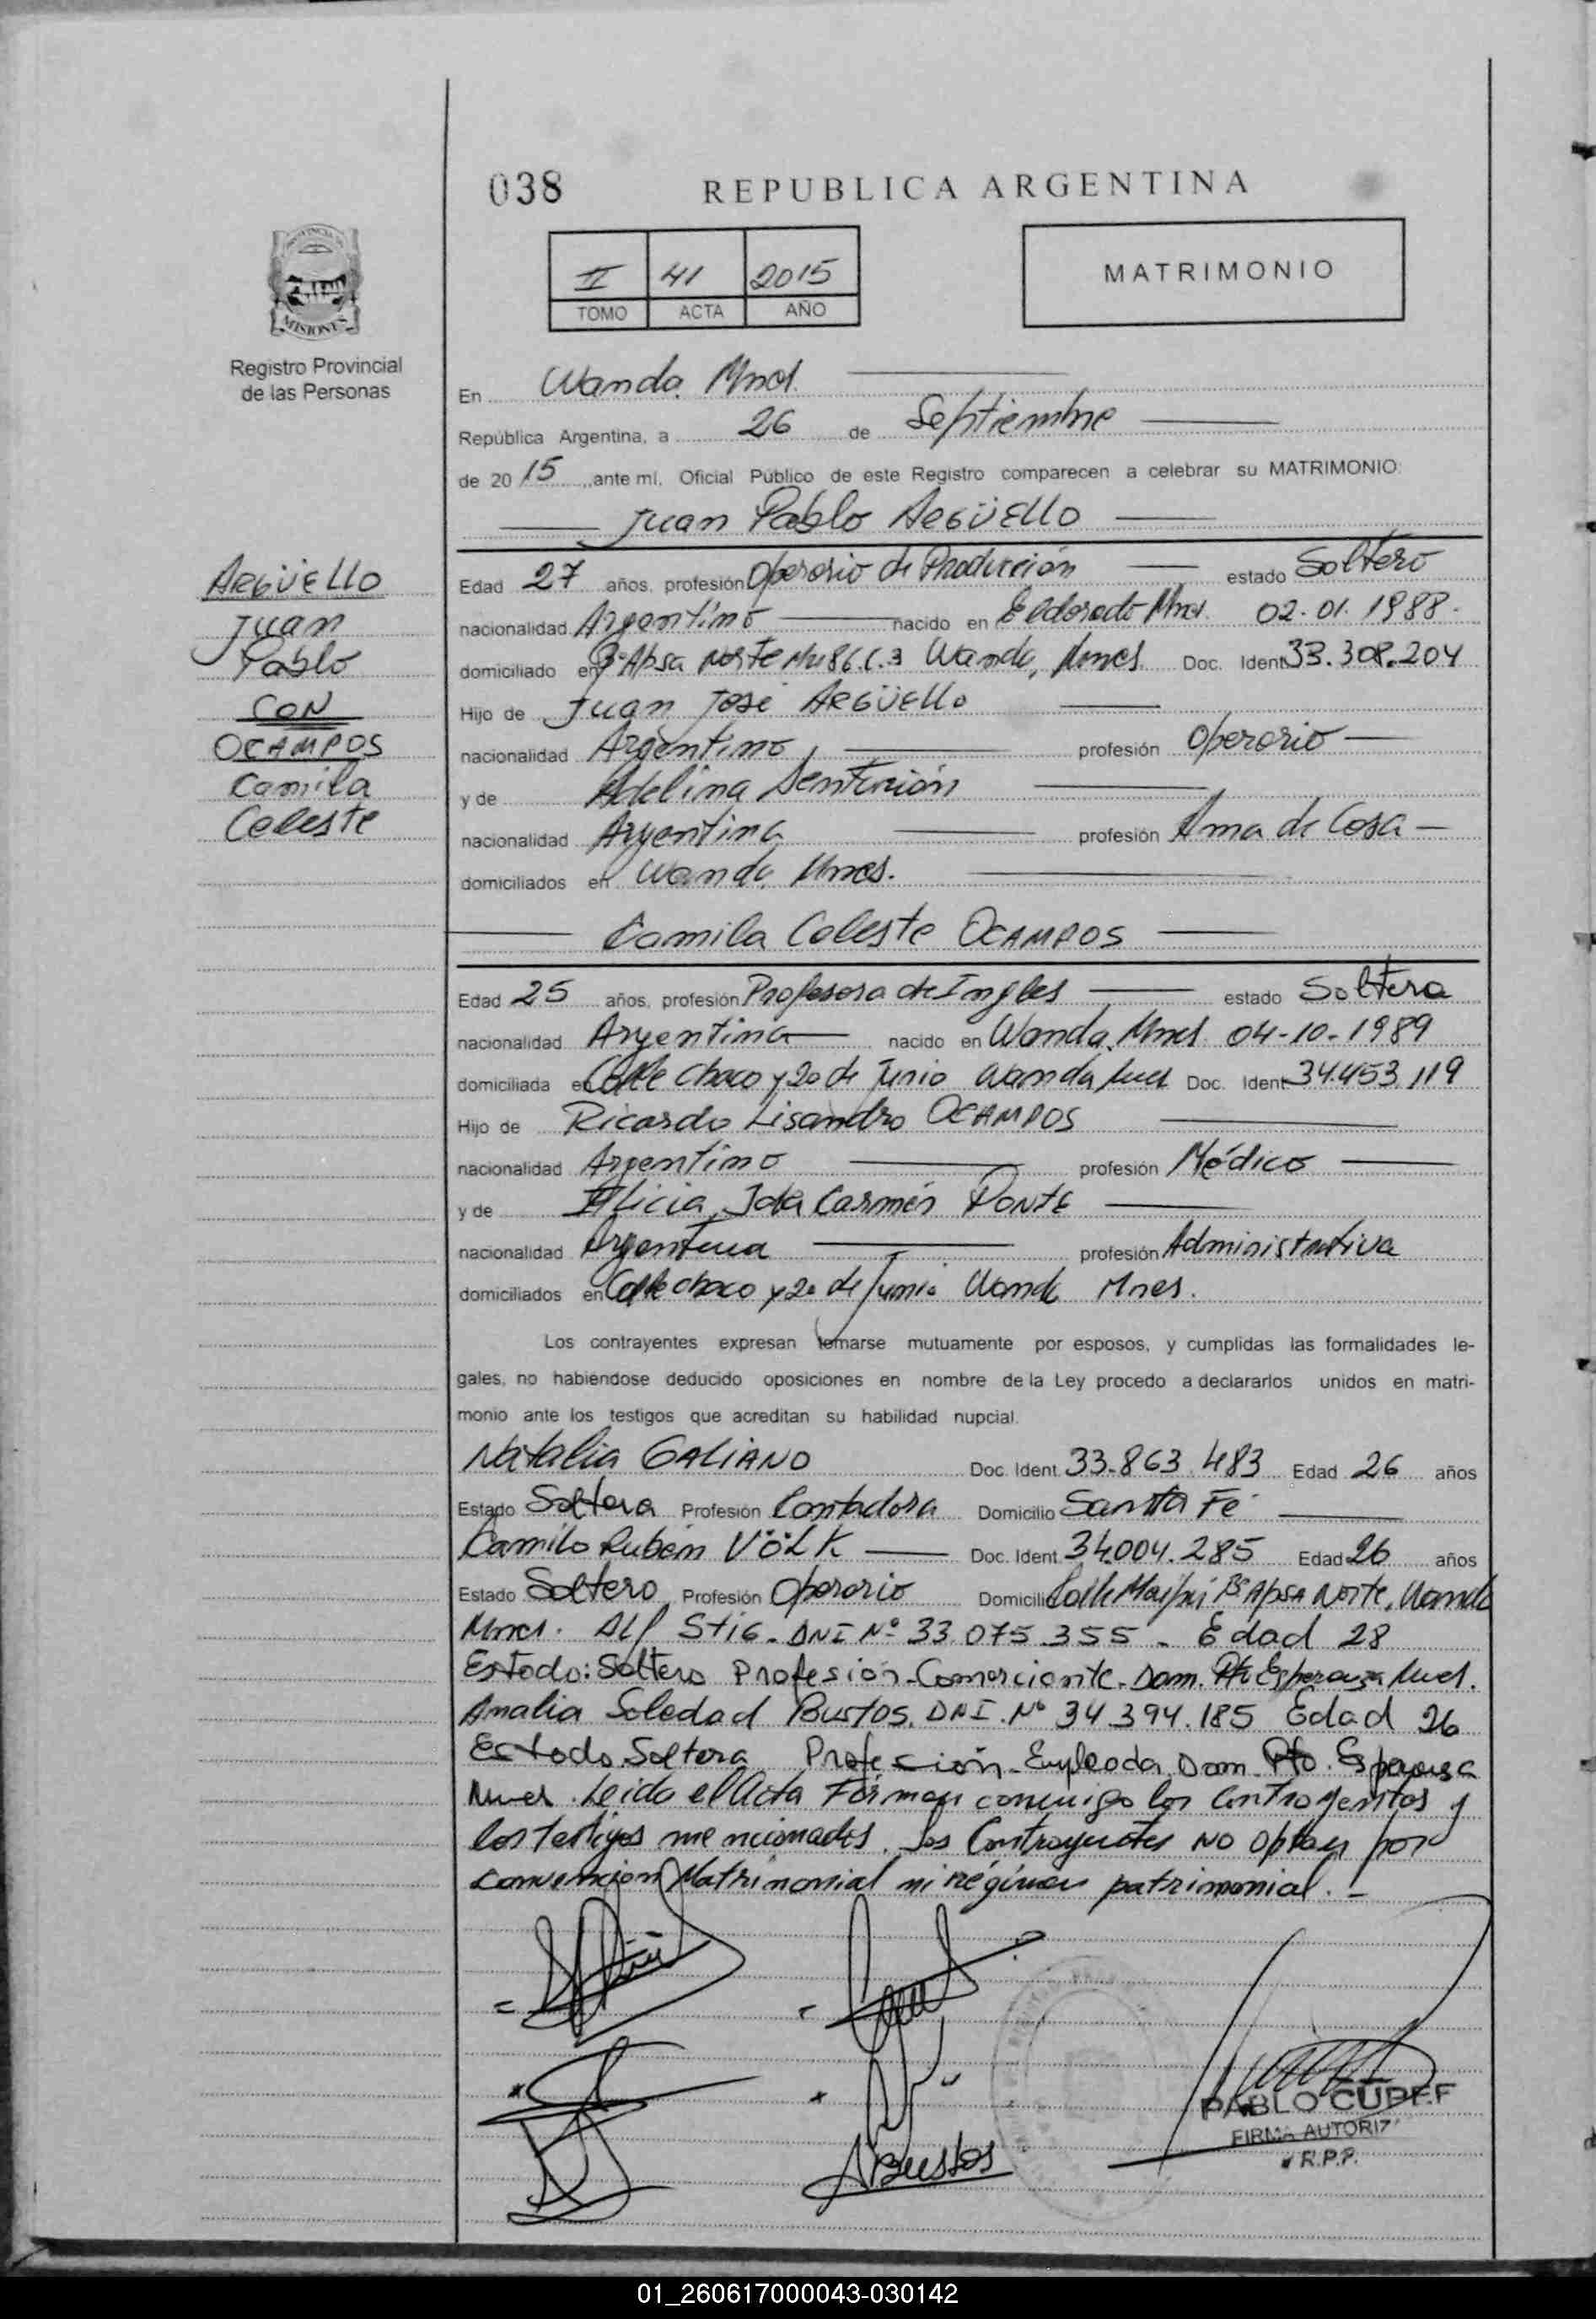 038
REPUBLICA ARGENTINA
II 41 2015
TOMO ACTA AÑO
MATRIMONIO
PROVINCIA DE
MISIONES
Registro Provincial
de las Personas
En Wanda. Mnes.
República Argentina, a 26 de Septiembre
de 2015 ante mí, Oficial Público de este Registro comparecen a celebrar su MATRIMONIO:
Juan Pablo ARGÜELLO
ARGÜELLO
Juan
Pablo
CON
OCAMPOS
Camila
Celeste
Edad 27 años, profesión Operario de Producción estado Soltero
nacionalidad Argentino nacido en Eldorado Mnes. 02.01.1988.
domiciliado en B° Apsa Norte Mz 86 C.3 Wanda, Mnes Doc. Ident 33.308.204
Hijo de Juan José ARGÜELLO
nacionalidad Argentino profesión Operario
y de Adelina Senturión
nacionalidad Argentina profesión Ama de Casa
domiciliados en Wanda Mnes.
Camila Celeste OCAMPOS
Edad 25 años, profesión Profesora de Ingles estado Soltera
nacionalidad Argentina nacido en Wanda, Mnes 04-10-1989
domiciliada en Calle Chaco y 20 de Junio Wanda Mnes Doc. Ident 34.453.119
Hijo de Ricardo Lisandro OCAMPOS
nacionalidad Argentino profesión Médico
y de Alicia Ida Carmén PONTE
nacionalidad Argentina profesión Administrativa
domiciliados en Calle chaco y 20 de Junio Wanda Mnes.
Los contrayentes expresan tomarse mutuamente por esposos, y cumplidas las formalidades le-
gales, no habiéndose deducido oposiciones en nombre de la Ley procedo a declararlos unidos en matri-
monio ante los testigos que acreditan su habilidad nupcial.
Natalia GALIANO Doc. Ident. 33.863.483 Edad 26 años
Estado Soltera Profesión Contadora Domicilio Santa Fe
Camilo Rubén VÖLK Doc. Ident. 34.004.285 Edad 26 años
Estado Soltero Profesión Operario Domicilio Calle Maipú B° Apsa Norte, Wanda
Mnes. Stie. DNI N° 33.075.355 - Edad 28
Estado: Soltero Profesión-Comerciante. Dom. Pto Esperanza Mnes.
Amalia Soledad Bustos. DNI. N° 34.394.185 Edad 26
Estado Soltera Profesión-Empleada Dom. Pto. Esperanza
Mnes. Leida el Acta Firman conmigo los Contrayentes y
los testigos mencionados. Los Contrayentes NO optan por
convencion Matrimonial ni régimen patrimonial.-
ABustos
PABLO CUPEF
FIRMA AUTORIZ
R.P.P.
01_260617000043-030142